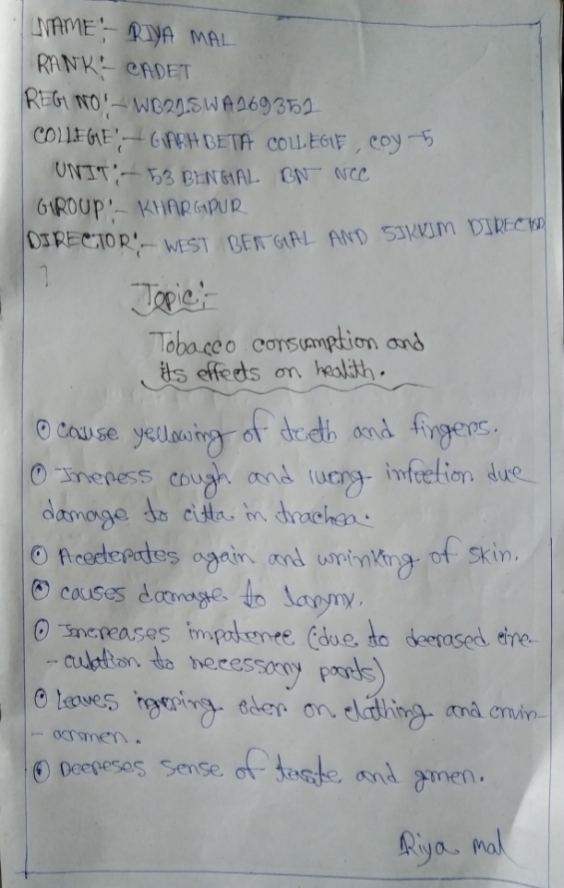 NAME:- RIYA MAL
RANK:- CADET
REGI NO:- WB21SWA269352
COLLEGE:- GARHBETA COLLEGE, COY-5
UNIT:- 53 BENGAL BN NCC
GROUP:- KHARGPUR
DIRECTOR:- WEST BENGAL AND SIKKIM DIRECTOR
Topic:-
Tobacco consumption and
its effects on health.
Cause yellowing of teeth and fingers.
Incress cough and lueng infection due
damage to citta in trachea.
Aceeterates again and wrinking of skin.
causes damage to larynx.
Increases impatence (due to decrased circ-
-culation to necessary parts)
Leaves ingering oder on clothing and envin-
-onmen.
Decreses sense of taste and
Riya mal